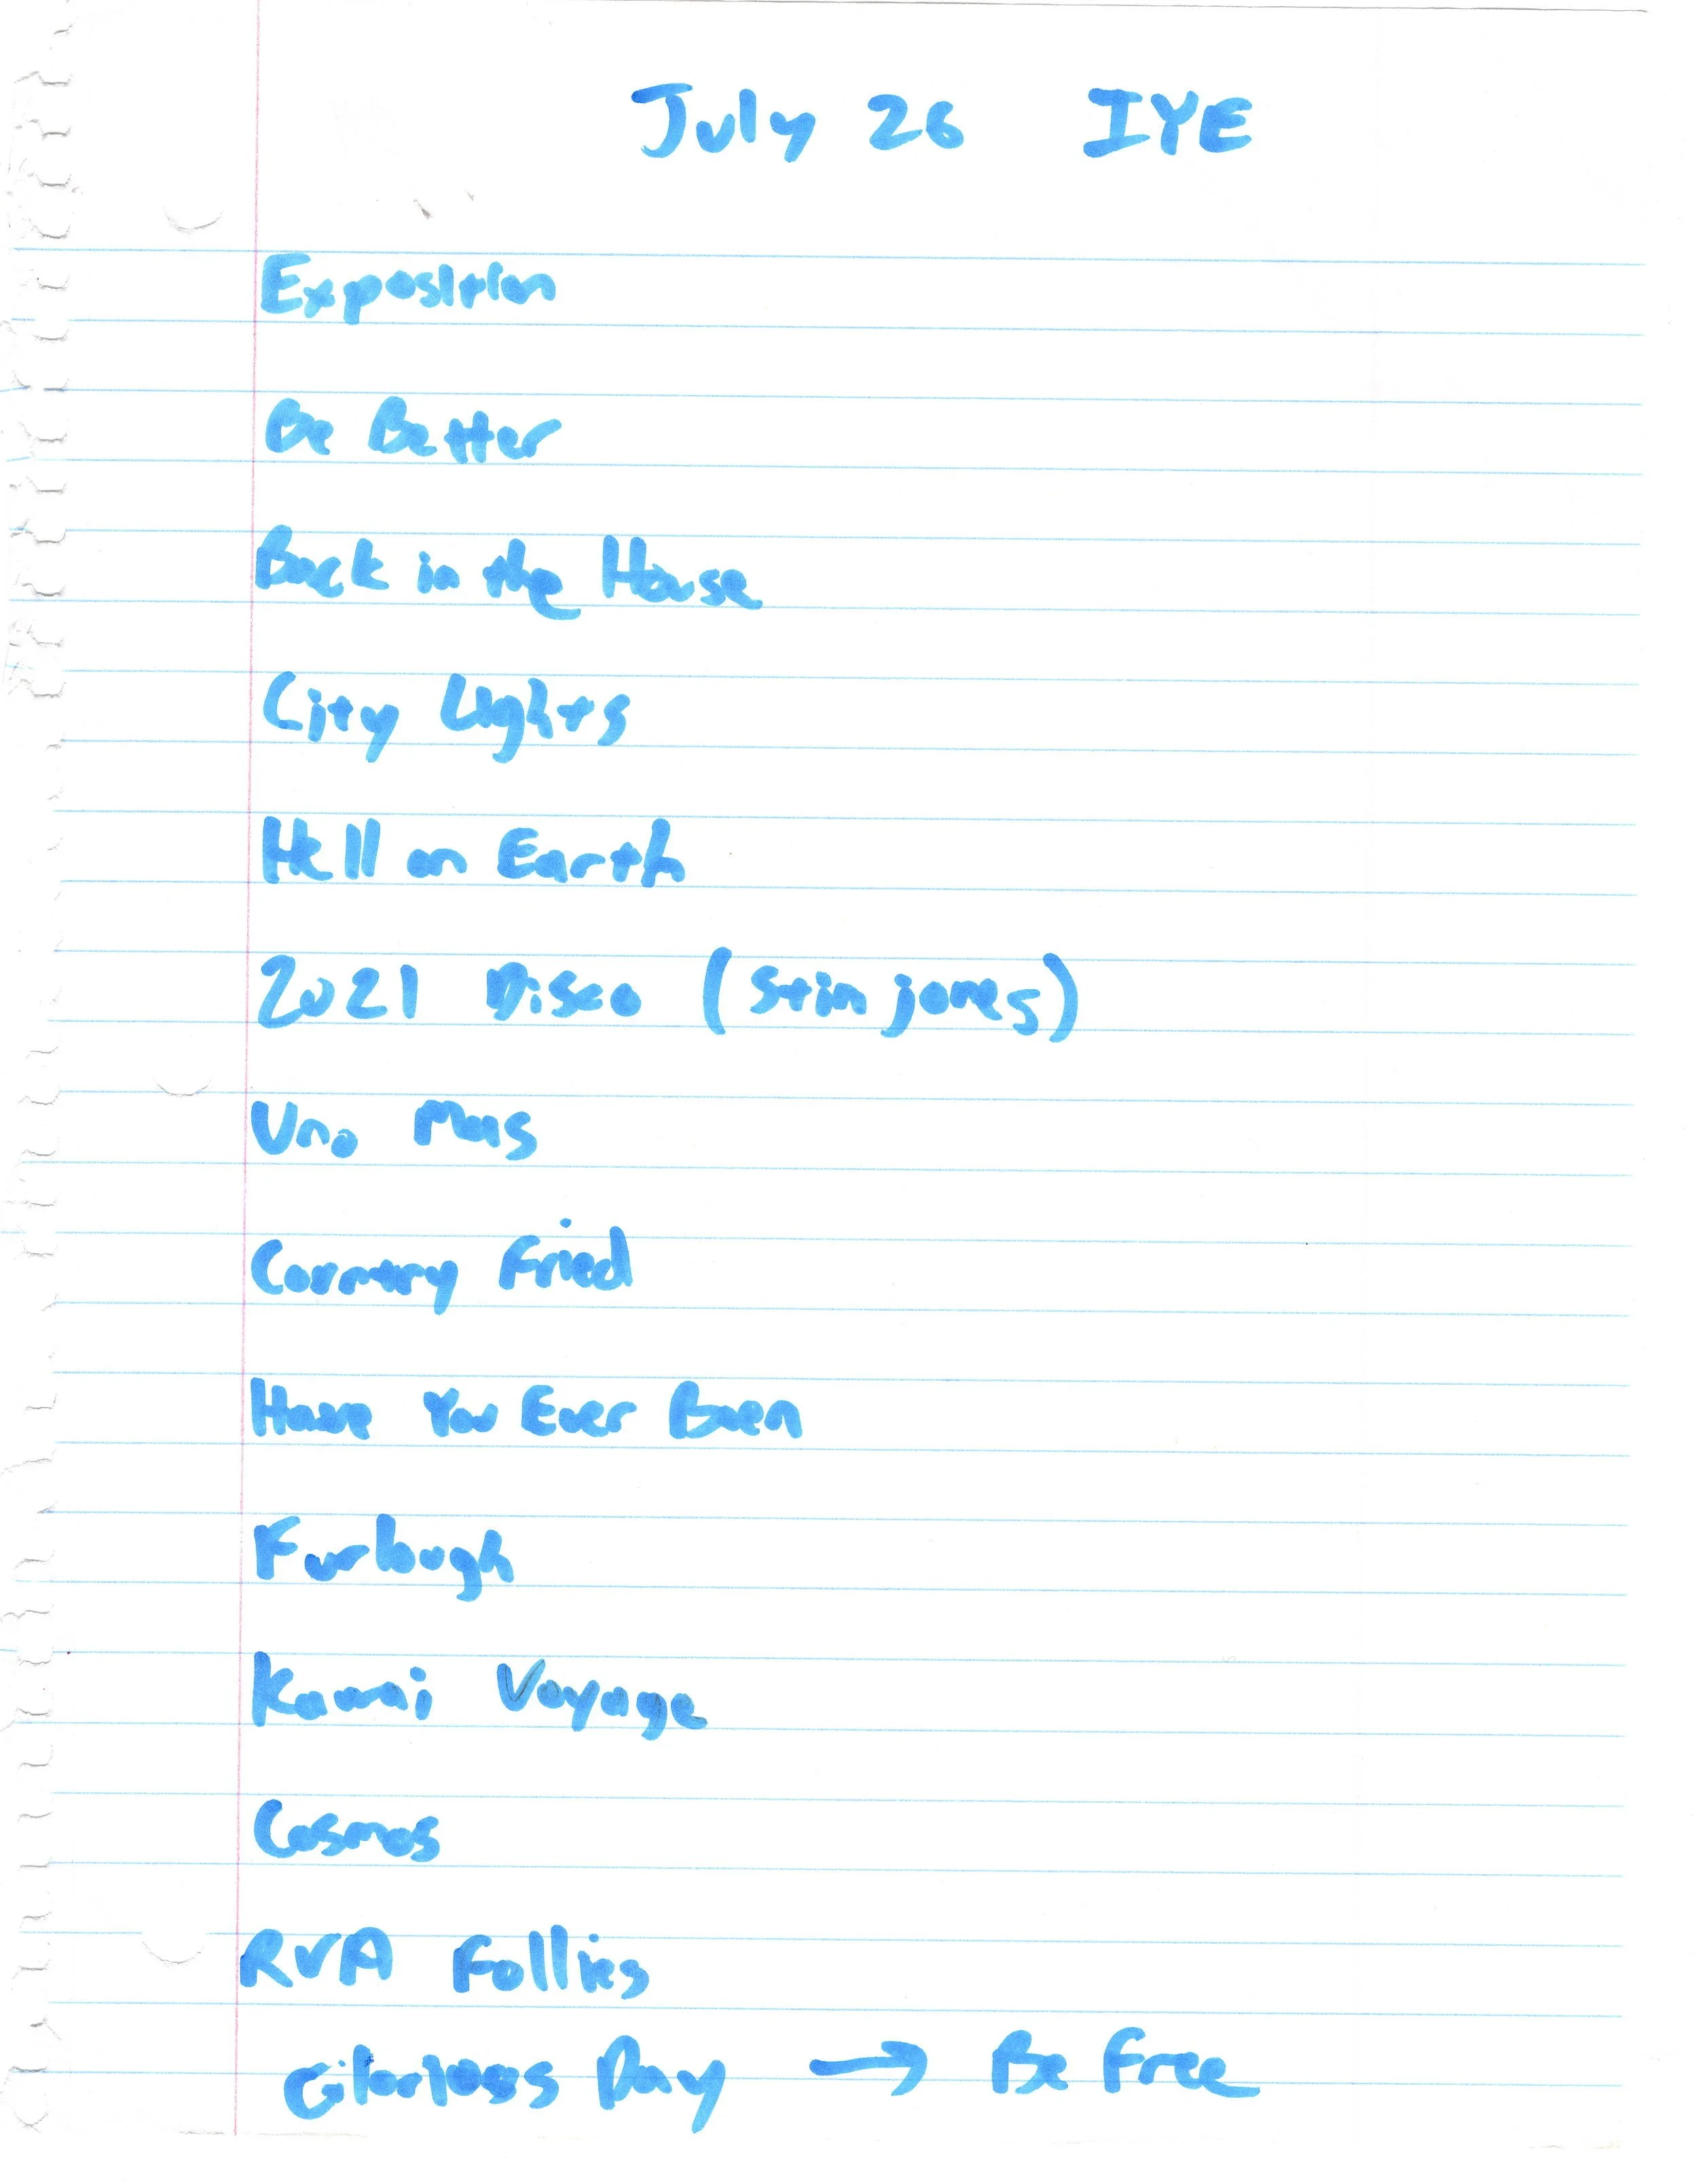 July 26 IYE
Exposition
Be Better
Back in the House
City Lights
Hell on Earth
2021 Disco (Stim jones)
Uno Mas
Country Fried
Have You Ever Been
Furlough
Kawai Voyage
Cosmos
RVA Follies
Glorious Day → Be Free